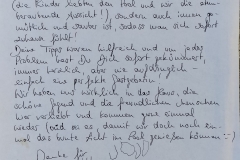 (die Kinder liebten den Pool und wir die atem-
beraubende Aussicht!) sondern auch innen ge-
mütlich und sauber ist, sodass man sich sofort
zuhause fühlt!
Deine Tipps waren hilfreich und um jedes
Problem hast Du Dich sofort gekümmert,
immer herzlich, aber nie aufdringlich -
einfach eine perfekte Gastgeberin!
Wir haben uns wirklich in das Haus, die
schöne Gegend und die freundlichen Menschen
hier verliebt und kommen ganz einmal
wieder damit wir doch noch ein-
mal das bunte Licht im Pool genießen können
Danke für